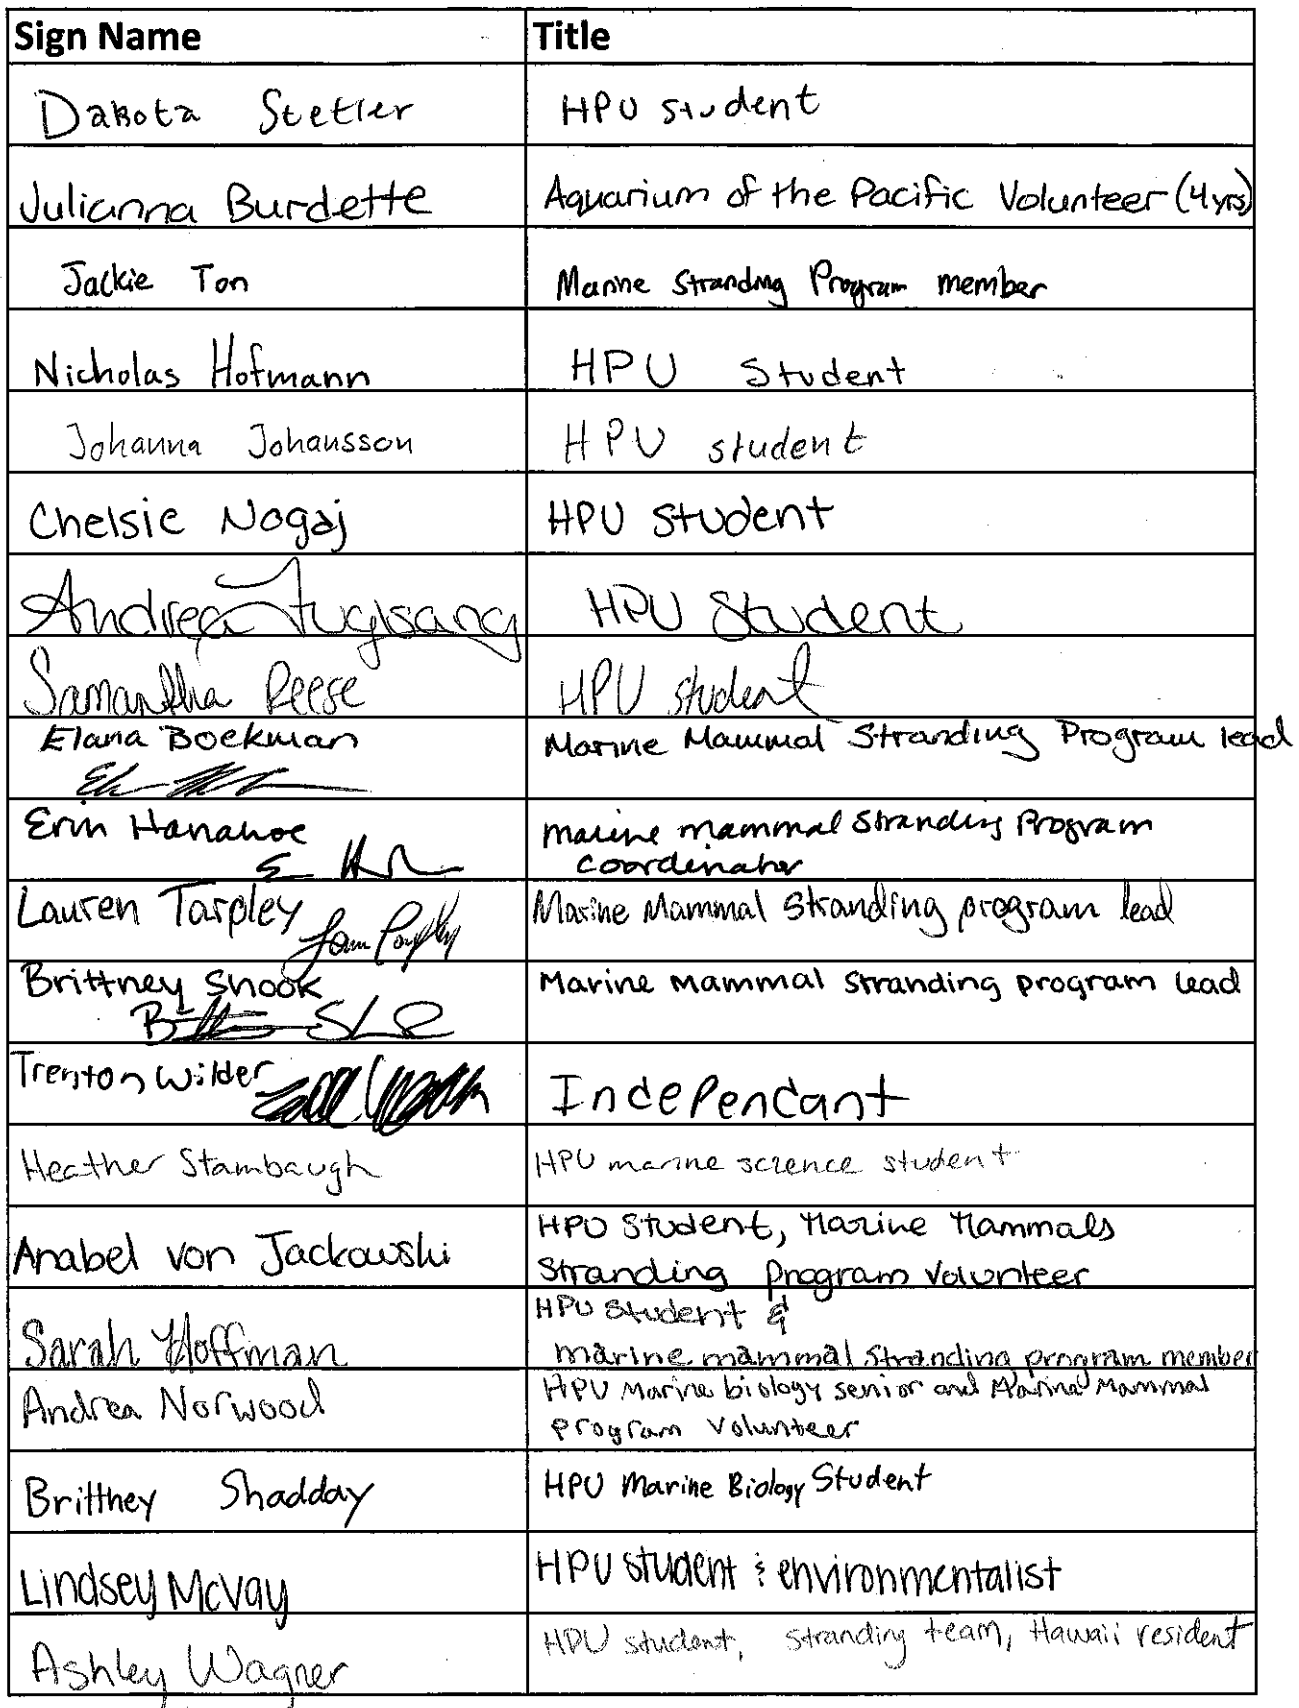 Sign Name Title
Dakota Stetler HPU student
Julianna Burdette Aquarium of the Pacific Volunteer (4 yrs)
Jackie Ton Marine Stranding Program member
Nicholas Hofmann HPU Student
Johanna Johansson HPU student
Chelsie Nogaj HPU Student
Andrea Fuglsang HPU Student
Samantha Reese HPU student
Elana Boekman Marine Mammal Stranding Program lead
Erin Hanahoe marine mammal Stranding Program
coordinator
Lauren Tarpley Marine Mammal Stranding program lead
Brittney Shook Marine Mammal Stranding program lead
Trenton Wilder Independant
Heather Stambaugh HPU marine science student
Anabel von Jackowski HPU Student, Marine Mammals
Stranding Program Volunteer
Sarah Hoffman HPU Student &
marine mammal Stranding program member
Andrea Norwood HPU Marine biology senior and Marine Mammal
program Volunteer
Brittney Shadday HPU Marine Biology Student
Lindsey McVay HPU student & environmentalist
Ashley Wagner HPU student, stranding team, Hawaii resident